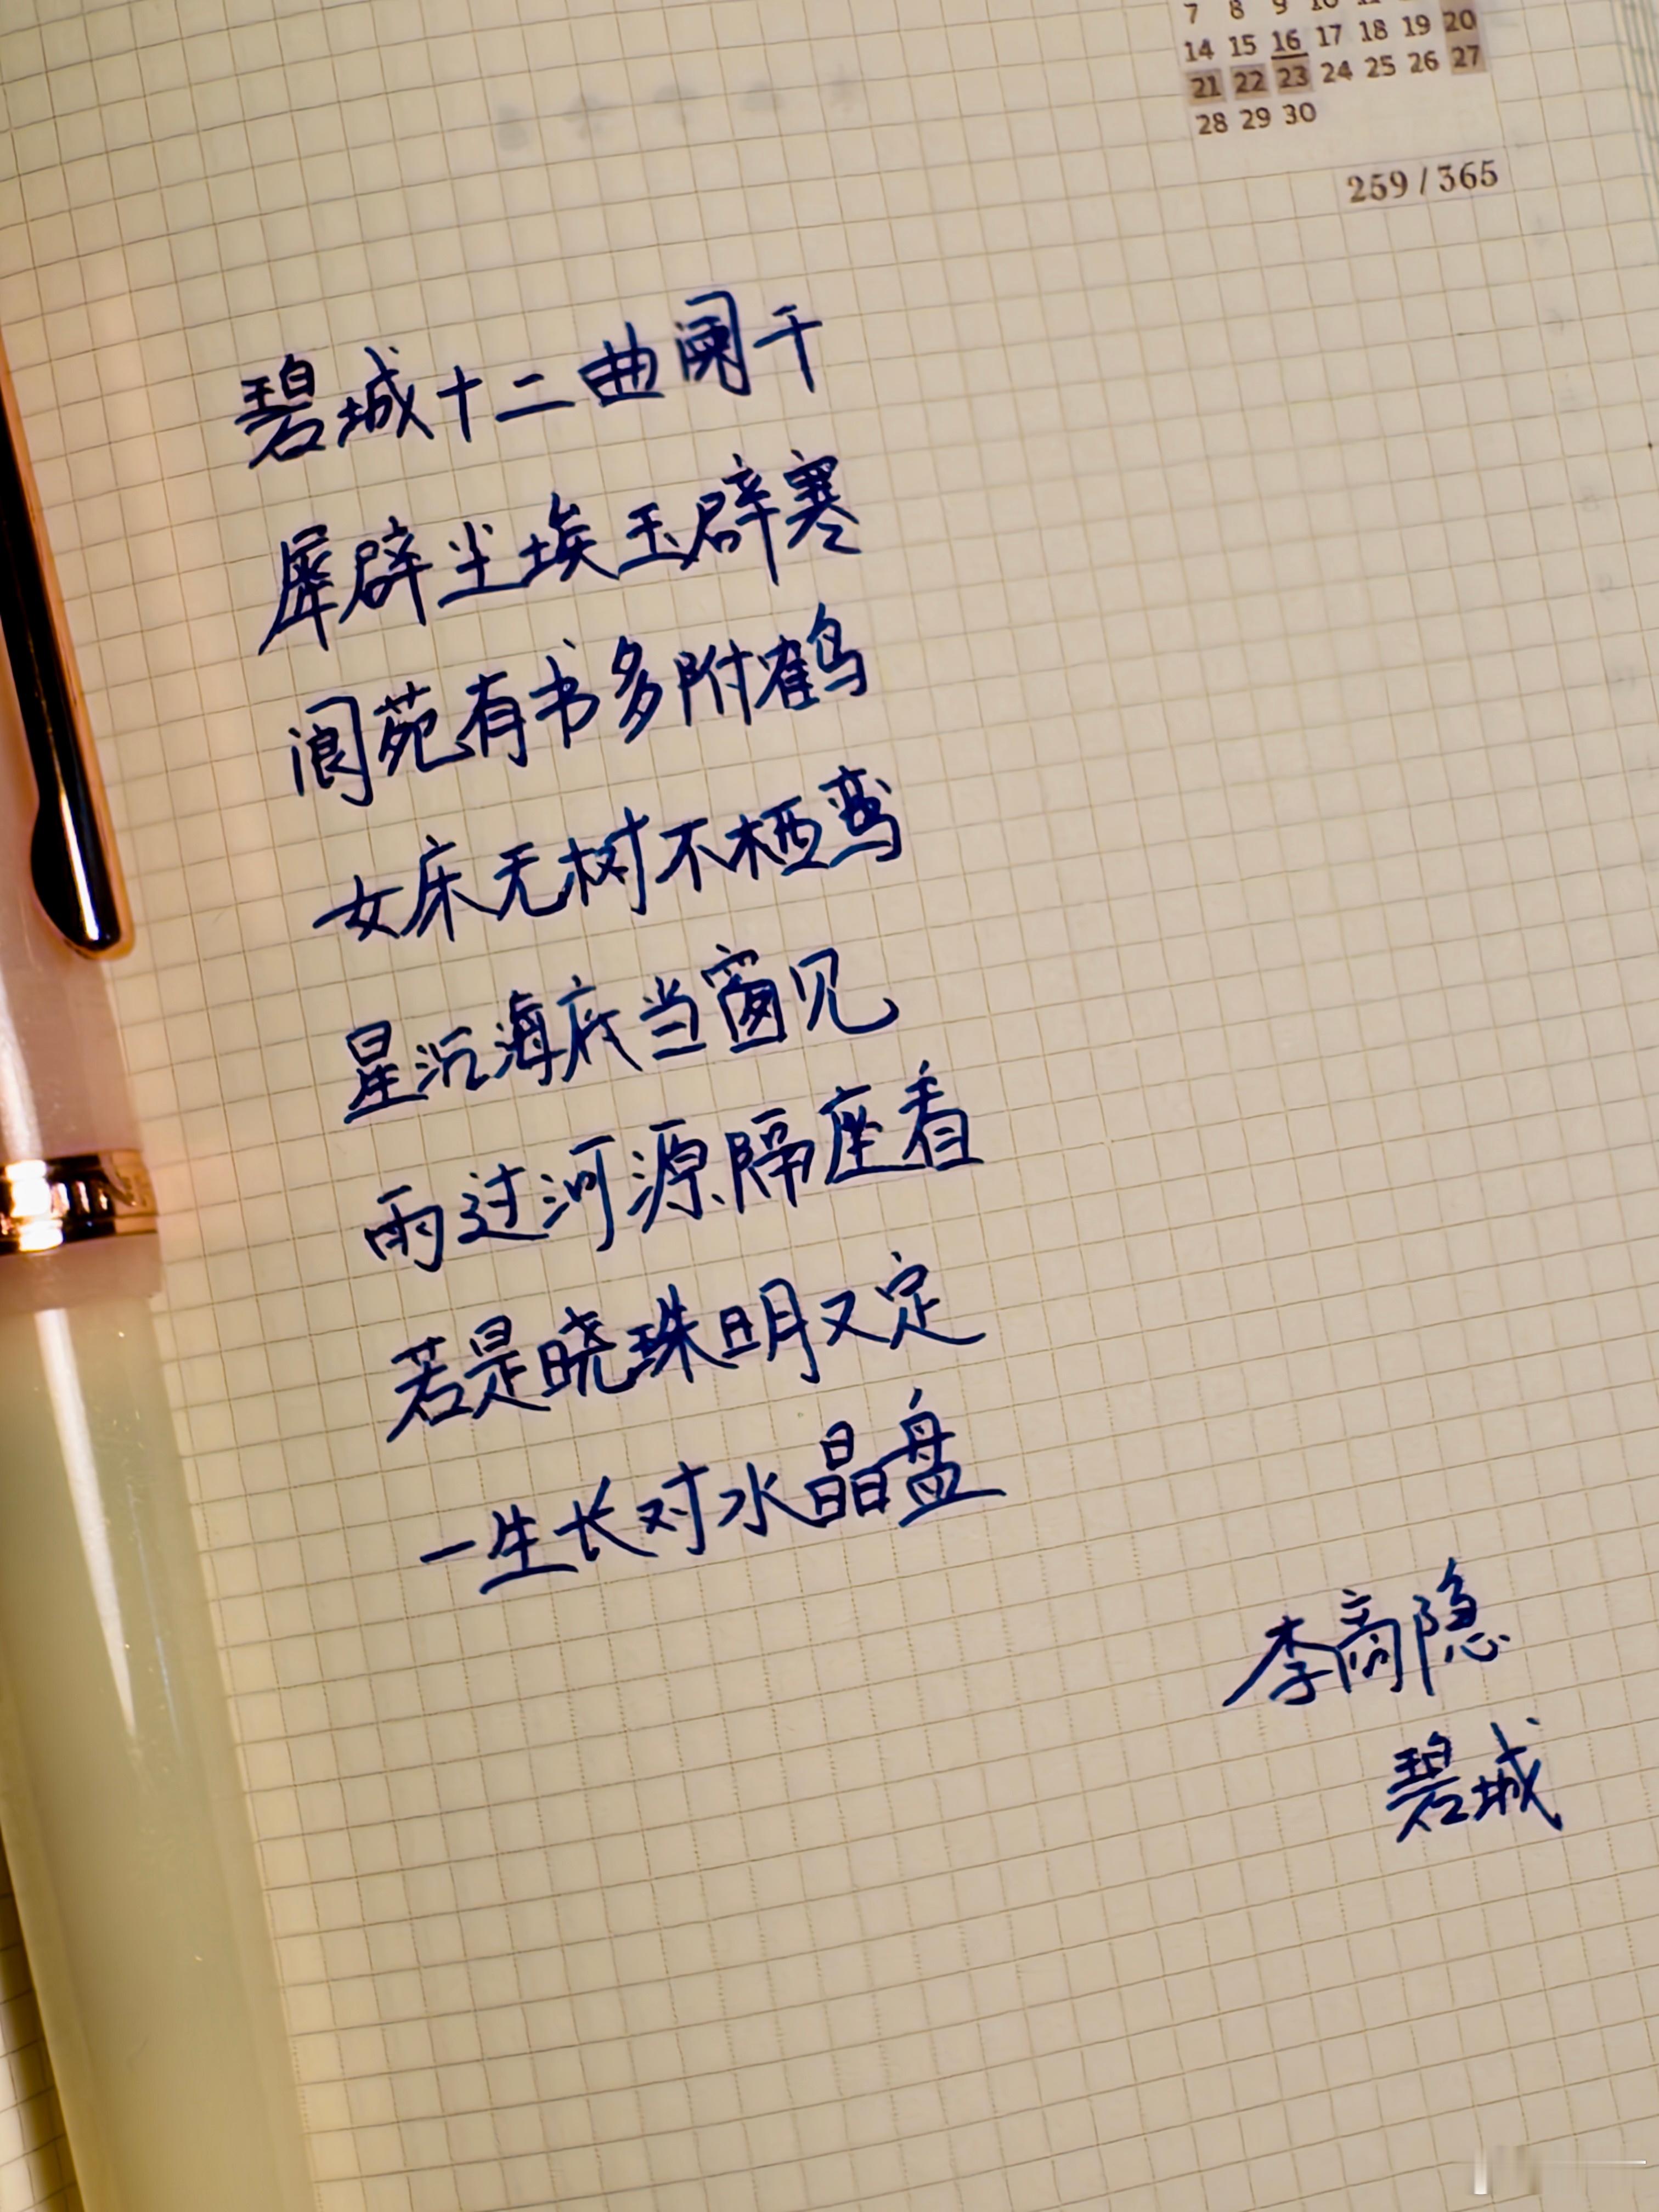 7 8 9 10 11
14 15 16 17 18 19 20
21 22 23 24 25 26 27
28 29 30
259 / 365
碧城十二曲阑干
犀辟尘埃玉辟寒
阆苑有书多附鹤
女床无树不栖鸾
星沉海底当窗见
雨过河源隔座看
若是晓珠明又定
一生长对水晶盘
李商隐
碧城